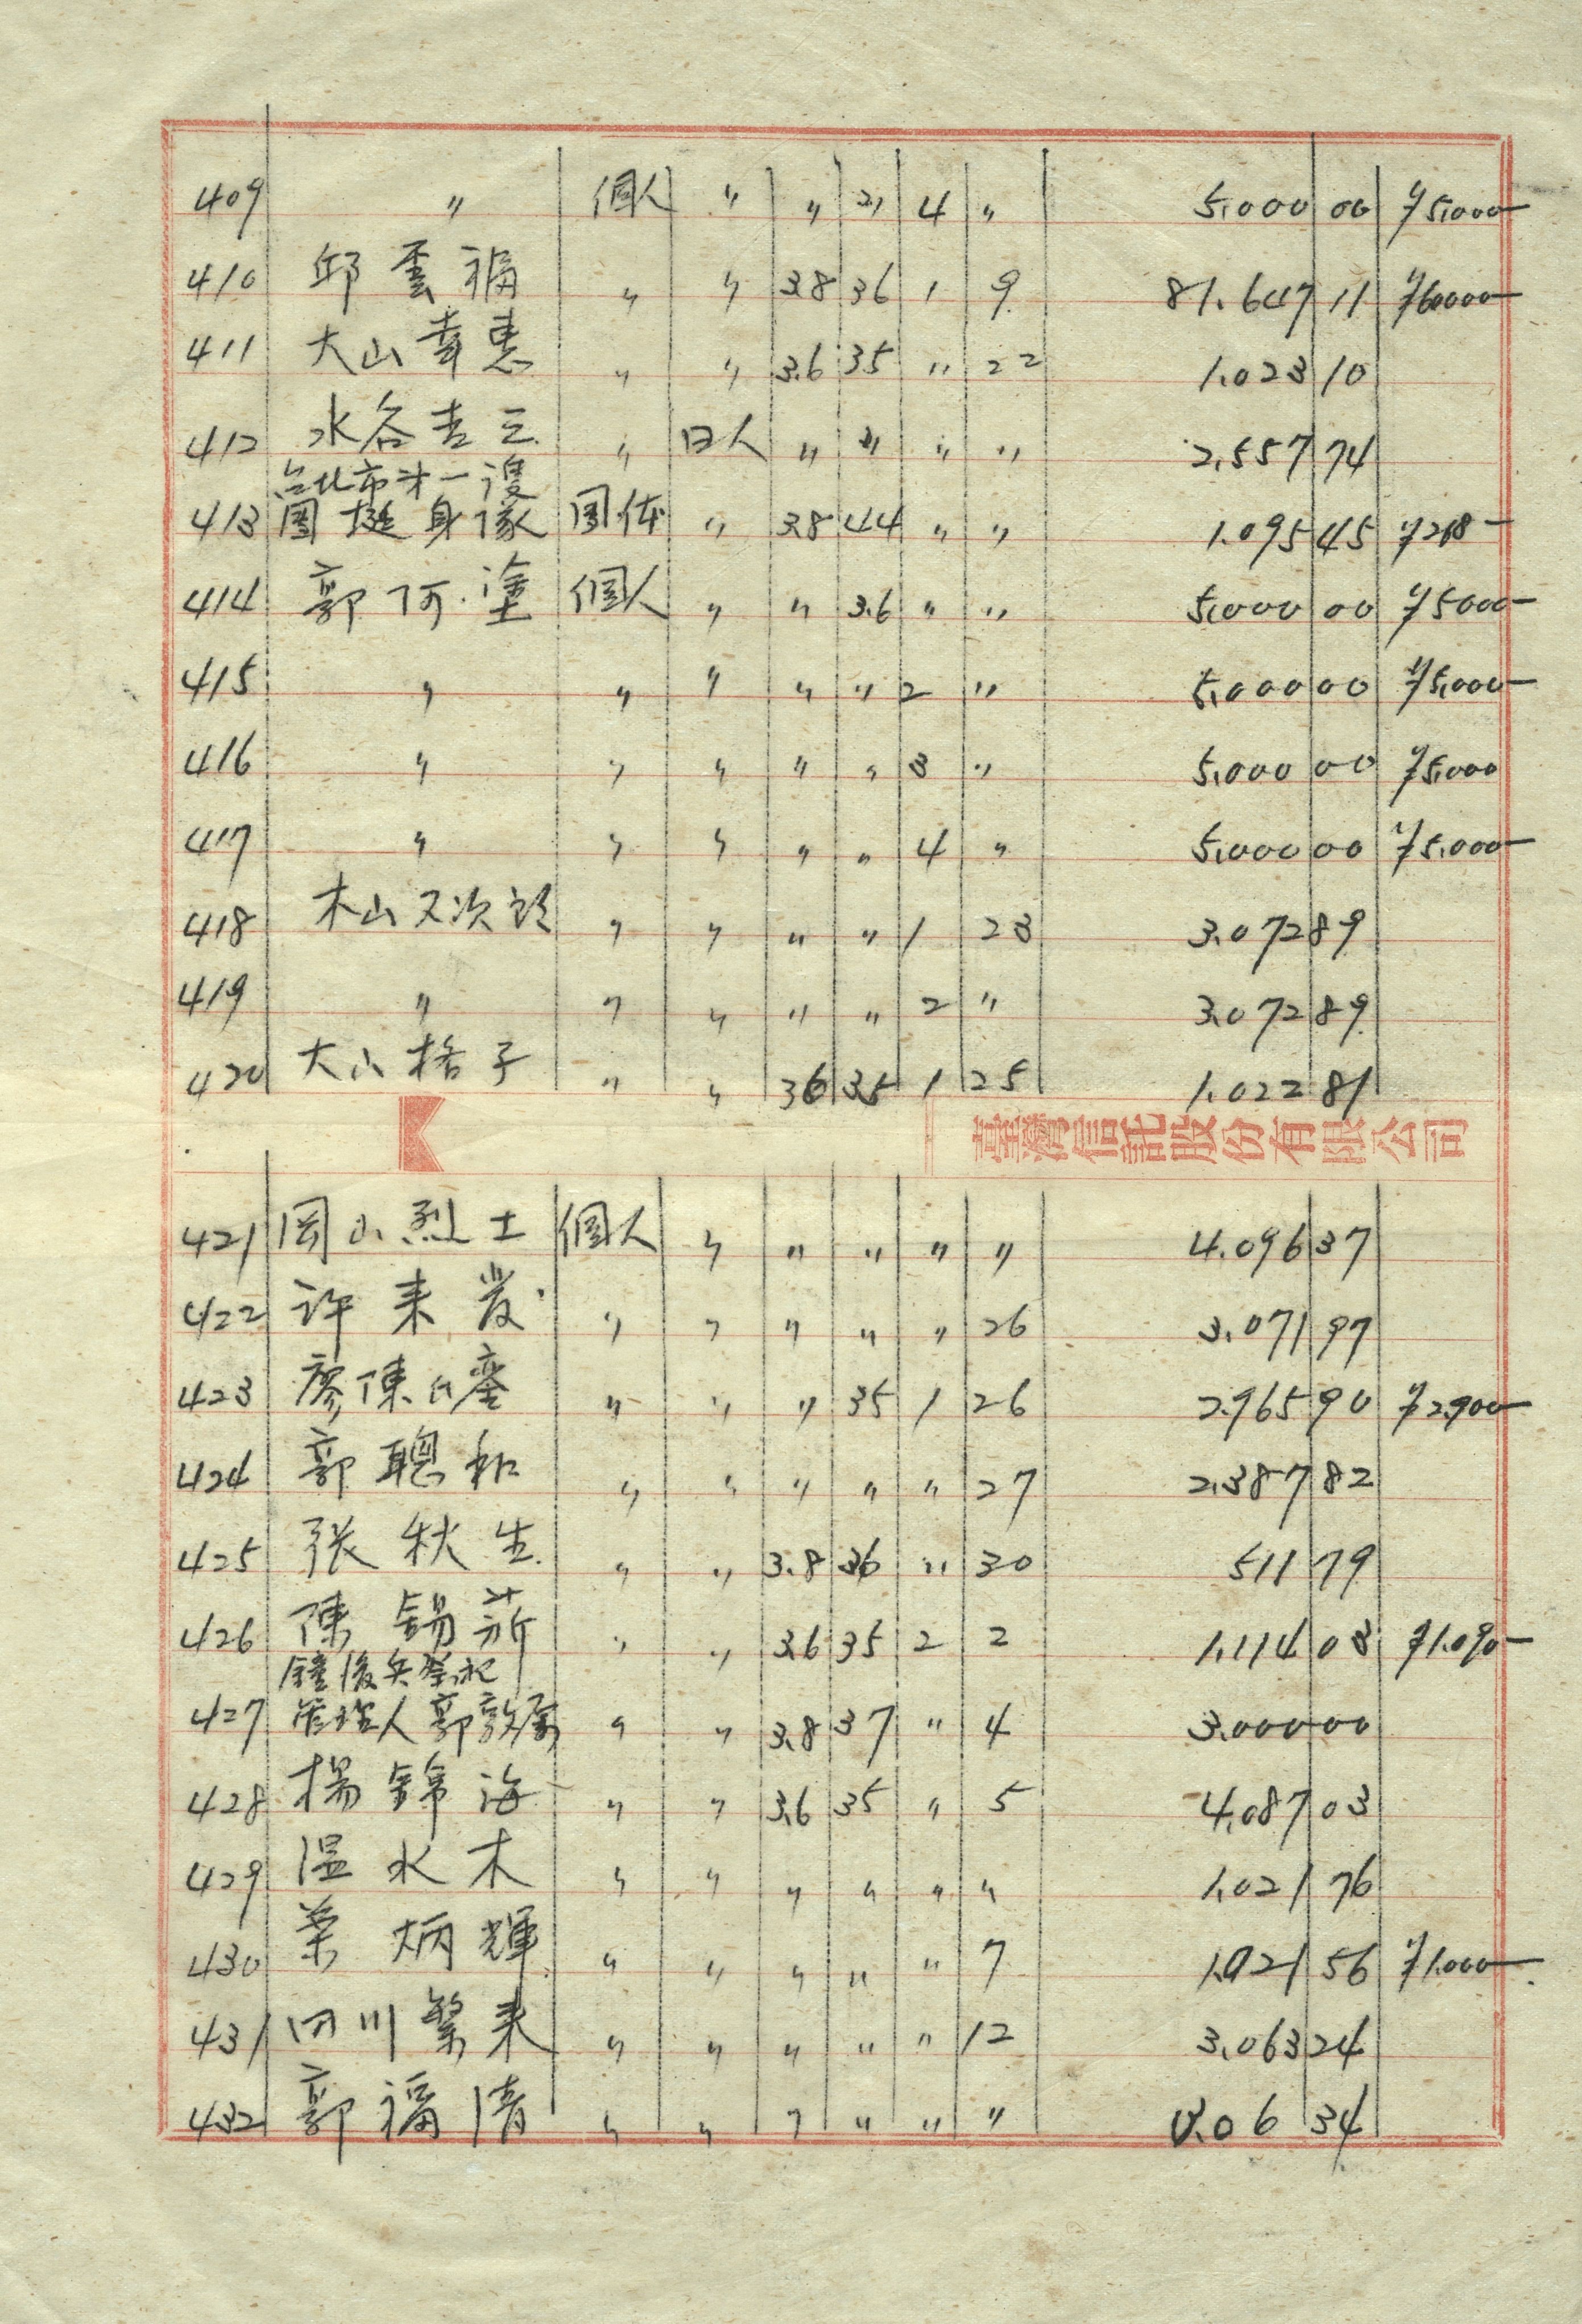 409 〃 個人 〃 〃 〃 4 〃 5,000 00 ¥5,000-
410 邱雲福 〃 〃 3.8 36 1 9 81.647 11 ¥60000-
411 大山幸惠 〃 〃 3.6 35 〃 22 1.023 10
412 水谷吉三 〃 日人 〃 〃 〃 〃 2,557 74
台北市才一
413 團挺身隊 団体 〃 3.8 44 〃 〃 1.095 45
414 郭阿塗 個人 〃 〃 3.6 〃 〃 5,000 00 ¥5000-
415 〃 〃 〃 〃 〃 2 〃 5,000 00 ¥5,000-
416 〃 〃 〃 〃 〃 3 〃 5,000 00 ¥5,000
417 〃 〃 〃 〃 〃 4 〃 5,000 00 ¥5,000-
418 木山又次郎 〃 〃 〃 〃 1 23 3.072 89
419 〃 〃 〃 〃 〃 2 〃 3.072 89
420 大山格子 〃 〃 36 35 1 25 1.022 81
臺灣信託股份有限公司
421 岡山烈士 個人 〃 〃 〃 〃 〃 4.096 37
422 许来發 〃 〃 〃 〃 〃 26 3.071 97
423 廖陳氏 〃 〃 〃 35 1 26 2.965 90 ¥2,900-
424 郭聰和 〃 〃 〃 〃 〃 27 2.387 82
425 張秋生 〃 〃 3.8 36 〃 30 511 79
426 陳錫 〃 〃 3.6 35 2 2 1.114 03 ¥1.090-
427 管理人郭 〃 〃 3.8 37 〃 4 3.000 00
428 楊錦海 〃 〃 3.6 35 〃 5 4,087 03
429 温水木 〃 〃 〃 〃 〃 〃 1,021 76
430 葉炳輝 〃 〃 〃 〃 〃 7 1.021 56 ¥1.000-
431 四川繁来 〃 〃 〃 〃 〃 12 3,063 24
432 郭福清 〃 〃 〃 〃 〃 〃 34